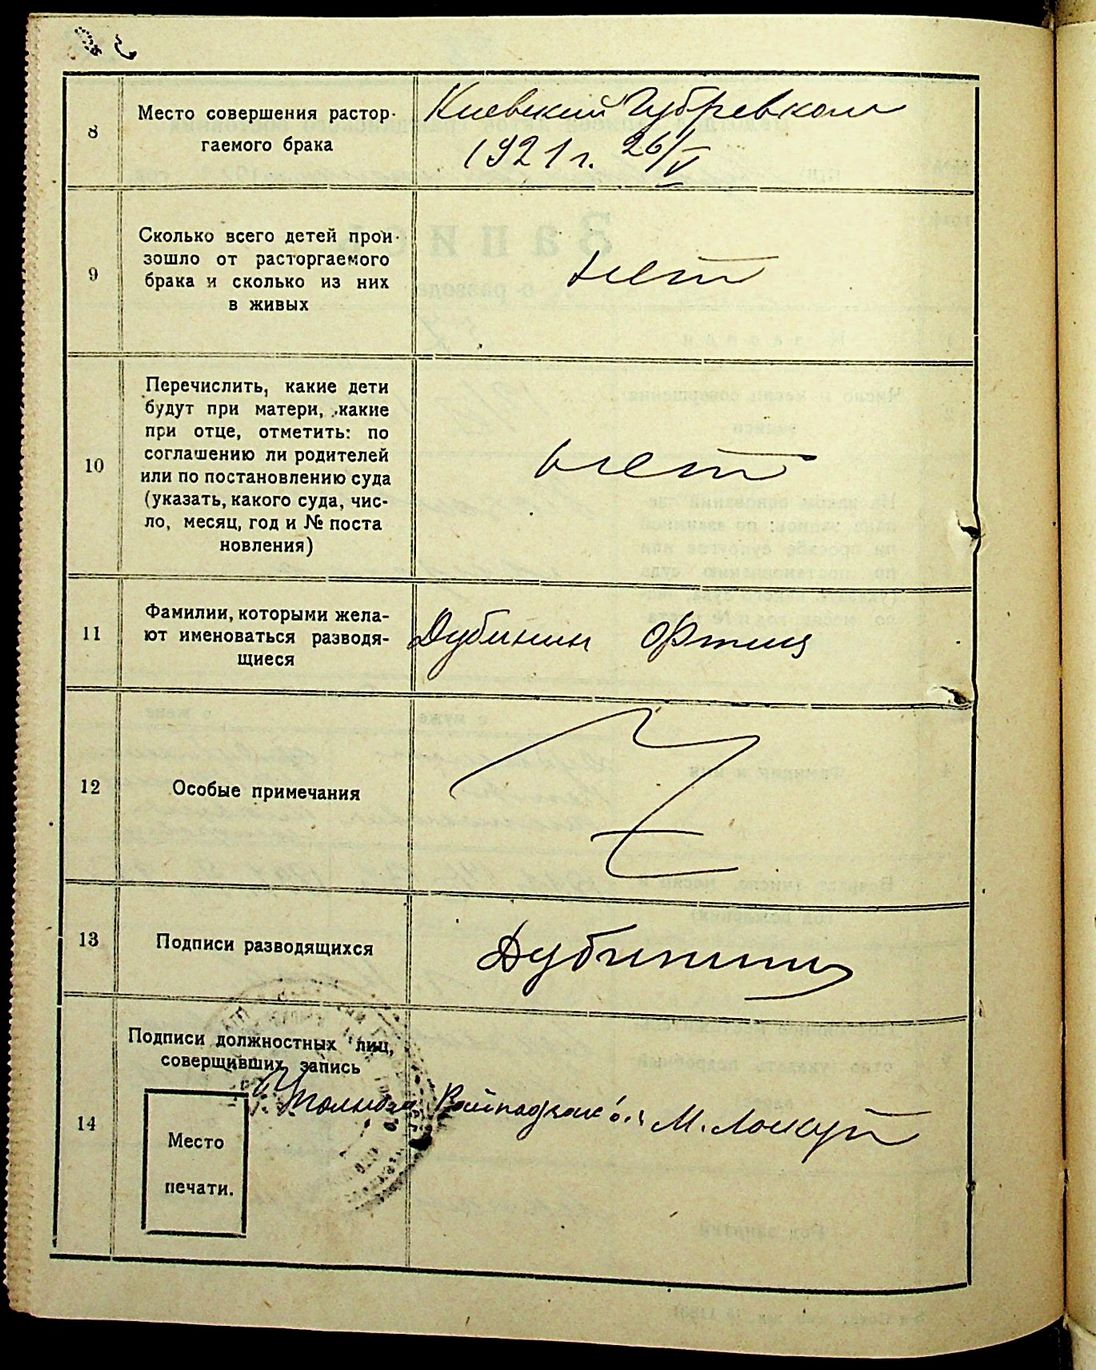 8
Место совершения растор-
гаемого брака
Киевский Губревком
1921 г. 26/V
9
Сколько всего детей прои-
зошло от расторгаемого
брака и сколько из них
в живых
нет
10
Перечислить, какие дети
будут при матери, какие
при отце, отметить: по
соглашению ли родителей
или по постановлению суда
(указать, какого суда, чис-
ло, месяц, год и № поста
новления)
нет
11
Фамилии, которыми жела-
ют именоваться разводя-
щиеся
Дубинин
12
Особые примечания
13
Подписи разводящихся
Дубинин
14
Подписи должностных лиц,
соверщивших запись
М.
Место
печати.